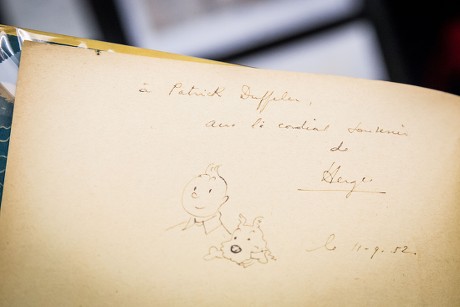 à Patrick Duffeler,
cordial souvenir
de
Hergé
le 11.9.52.